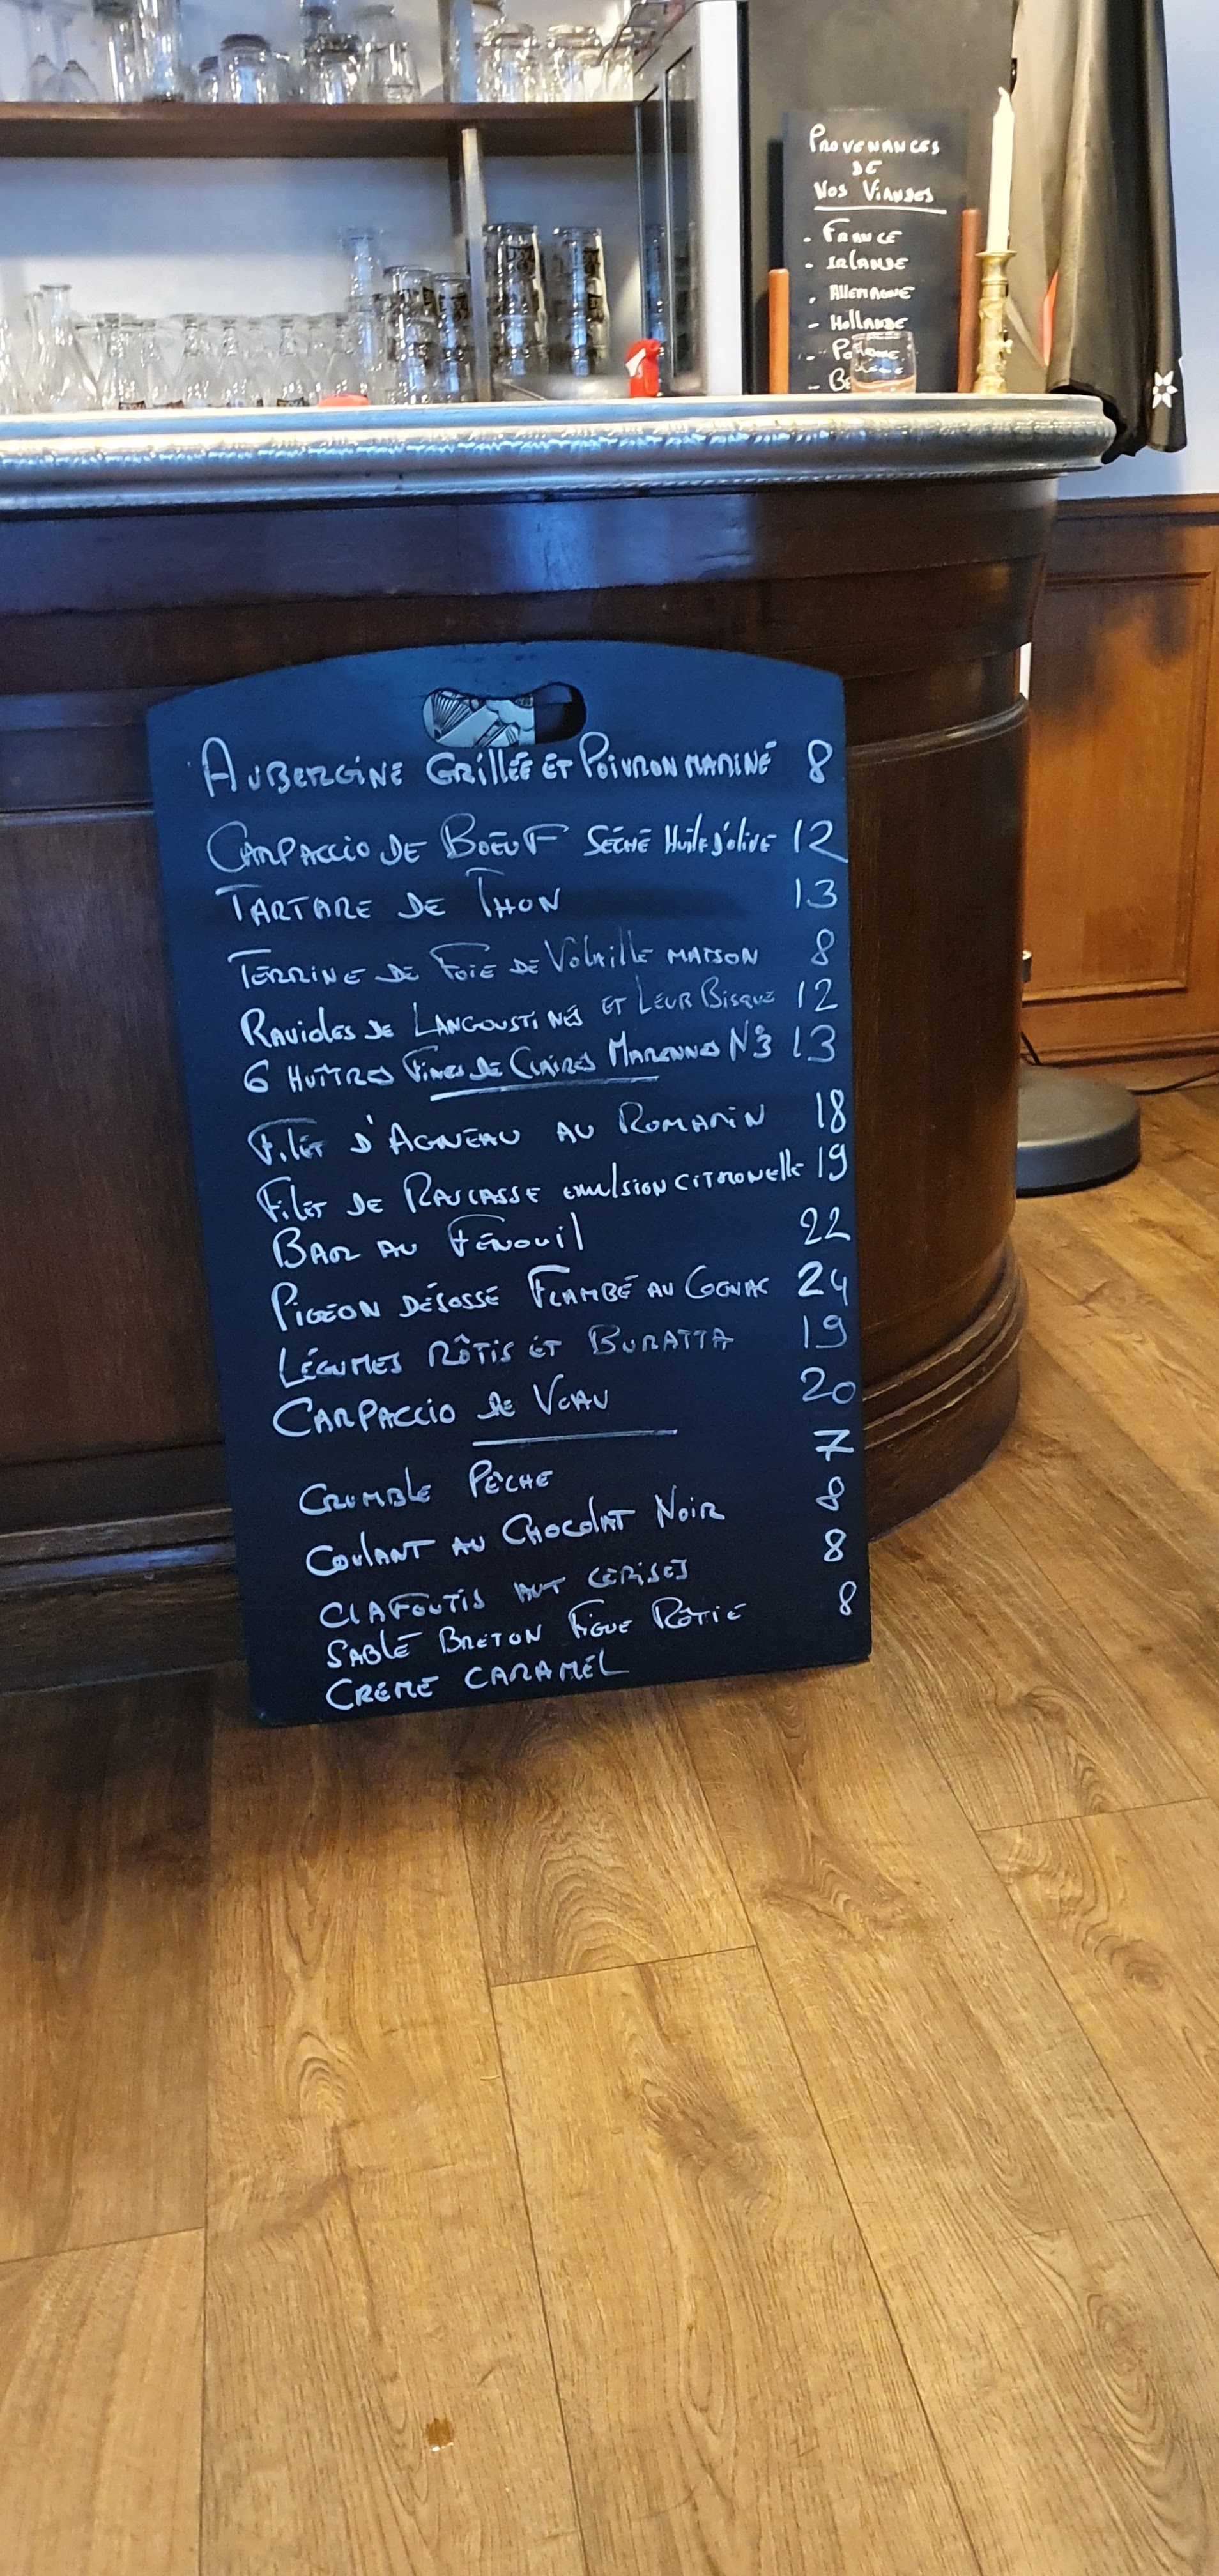 PROVENANCES
DE
NOS VIANDES
- FRANCE
- IRLANDE
- ALLEMAGNE
- HOLLANDE
AUBERGINE GRILLÉE ET POIVRON MARINÉ 8
CARPACCIO DE BOEUF SÉCHÉ HUILE D'OLIVE 12
TARTARE DE THON 13
TERRINE DE FOIE DE VOLAILLE MAISON 8
RAVIOLES DE LANGOUSTINES ET LEUR BISQUE 12
6 HUÎTRES FINES DE CLAIRES MARENNES N°3 13
FILET D'AGNEAU AU ROMARIN 18
FILET DE RASCASSE EMULSION CITRONELLE 19
BAR AU FENOUIL 22
PIGEON DÉSOSSÉ FLAMBÉ AU COGNAC 24
LÉGUMES RÔTIS ET BURATTA 19
CARPACCIO DE VEAU 20
CRUMBLE PÊCHE 7
COULANT AU CHOCOLAT NOIR 8
CLAFOUTIS AUX CERISES 8
SABLÉ BRETON FIGUE RÔTIE 8
CREME CARAMEL